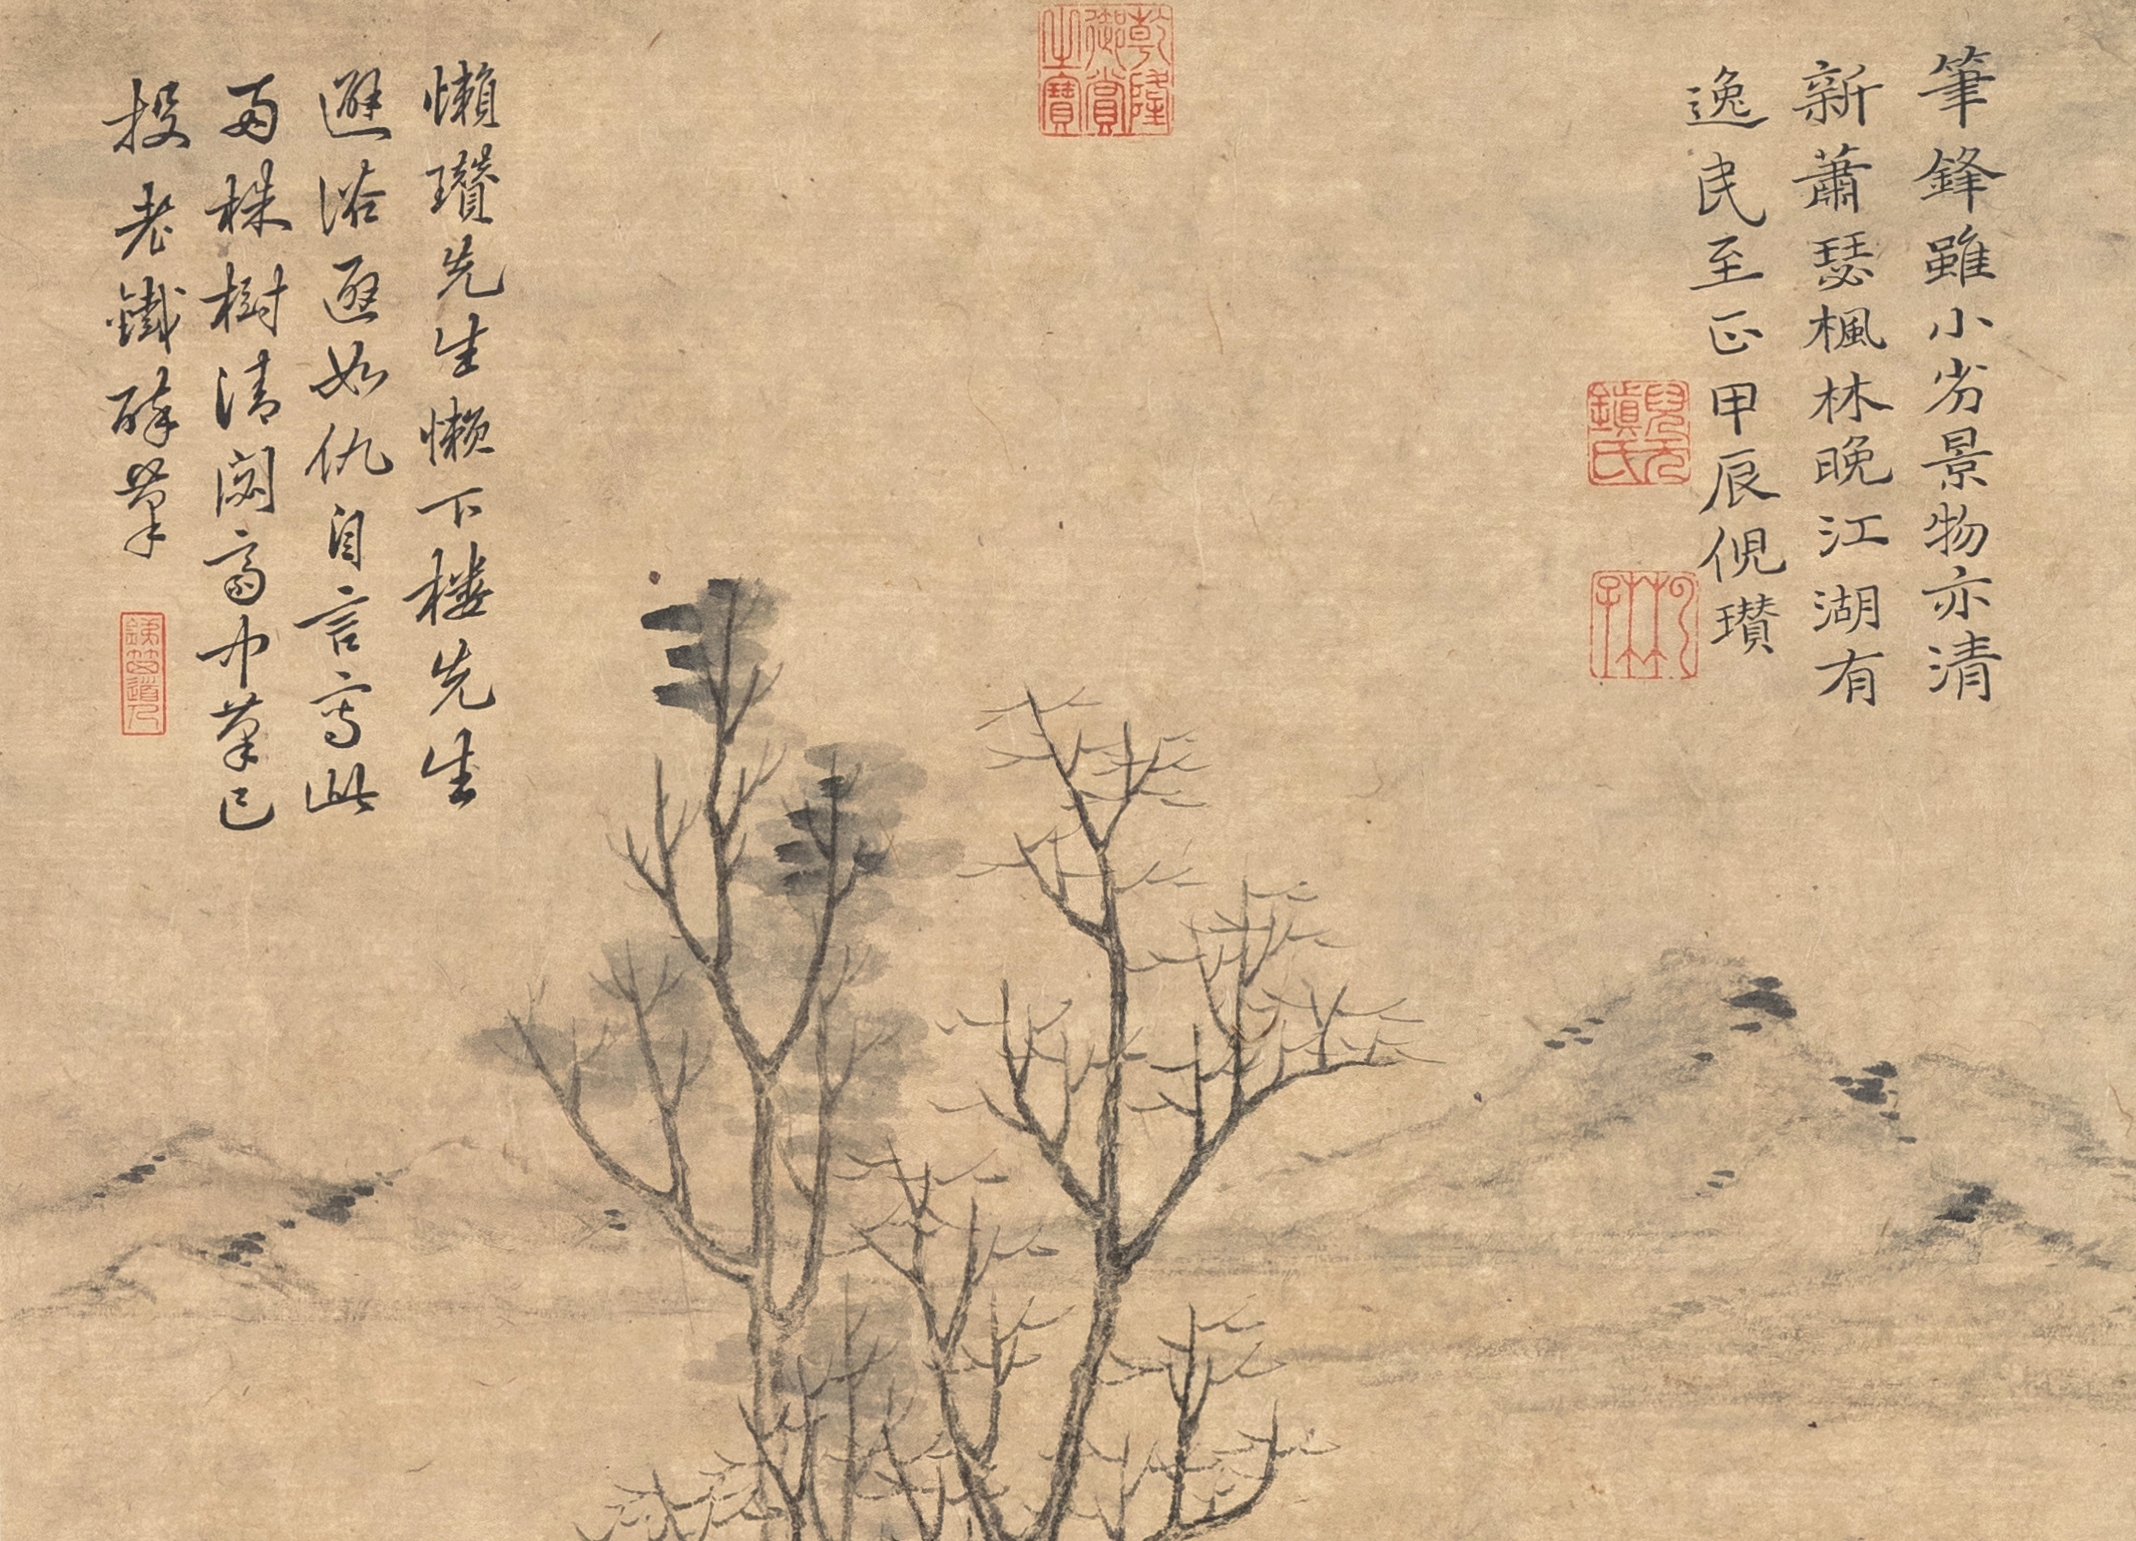 筆鋒雖小劣景物亦清
新蕭瑟楓林晚江湖有
逸民至正甲辰倪瓚
乾隆
御賞
之寶
懶瓚先生懶下樓先生
避俗避如仇自言寫此
兩株樹清閟齋中筆已
投老鐵醉筆
鐵笛道人